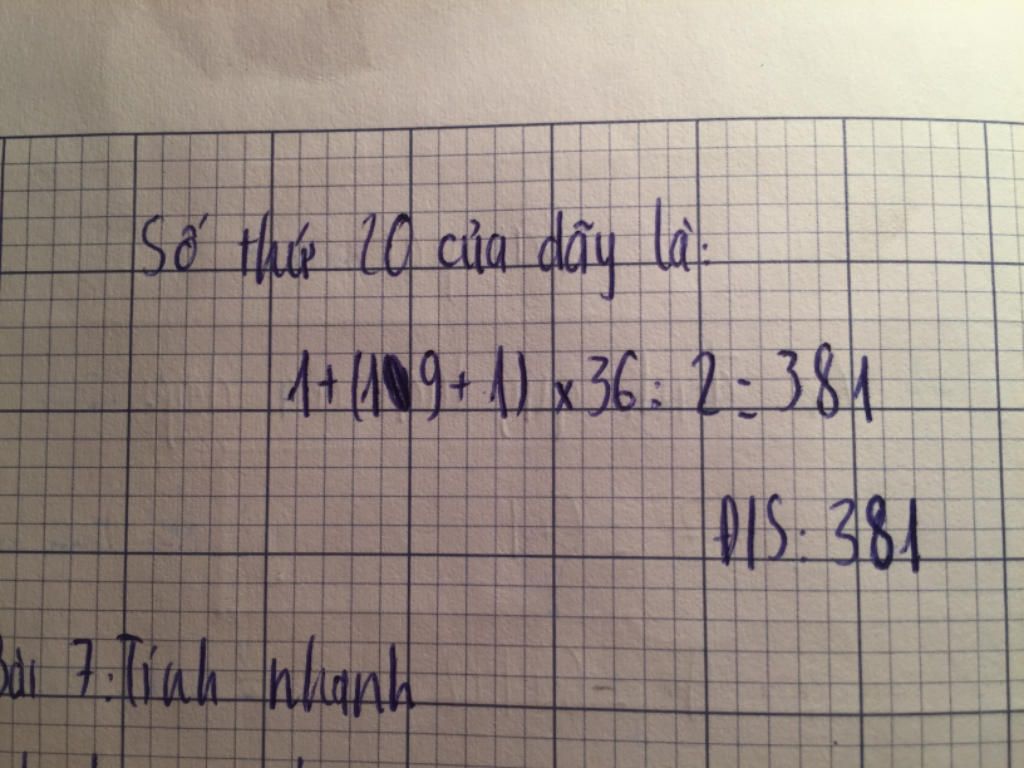 Số thứ 20 của dãy là:
1+(19+1) x 36 : 2 = 381
Đ/S: 381
Bài 7: Tính nhanh